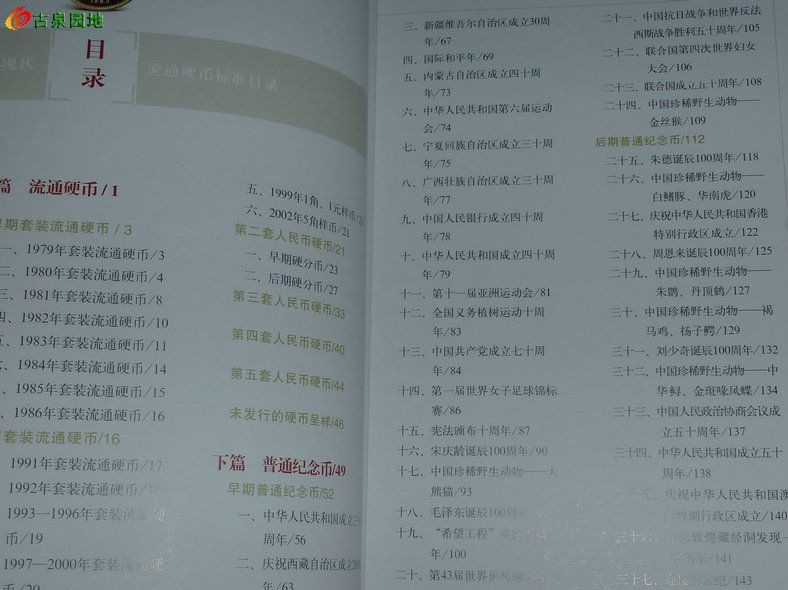 古泉园地
1983
现代
目录
流通硬币标准目录
篇 流通硬币/1
早期套装流通硬币 / 3
一、1979年套装流通硬币/3
二、1980年套装流通硬币/4
三、1981年套装流通硬币/8
四、1982年套装流通硬币/10
五、1983年套装流通硬币/11
六、1984年套装流通硬币/14
1985年套装流通硬币/15
1986年套装流通硬币/16
套装流通硬币/16
1991年套装流通硬币/17
1992年套装流通硬币/18
1993—1996年套装流通硬
币/19
1997—2000年套装流通硬
币/20
五、1999年1角、1元样币/
六、2002年5角样币/21
第二套人民币硬币/21
一、早期硬分币/23
二、后期硬分币/27
第三套人民币硬币/33
第四套人民币硬币/40
第五套人民币硬币/44
未发行的硬币呈样/46
下篇 普通纪念币/49
早期普通纪念币/52
一、中华人民共和国成立三
周年/56
二、庆祝西藏自治区成立20
年/63
三、新疆维吾尔自治区成立30周
年/67
四、国际和平年/69
五、内蒙古自治区成立四十周
年/73
六、中华人民共和国第六届运动
会/74
七、宁夏回族自治区成立三十周
年/75
八、广西壮族自治区成立三十周
年/77
九、中国人民银行成立四十周
年/78
十、中华人民共和国成立四十周
年/79
十一、第十一届亚洲运动会/81
十二、全国义务植树运动十周
年/83
十三、中国共产党成立七十周
年/84
十四、第一届世界女子足球锦标
赛/86
十五、宪法颁布十周年/87
十六、宋庆龄诞辰100周年/90
十七、中国珍稀野生动物——大
熊猫/93
十八、毛泽东诞辰100周年
十九、“希望工程”实施
年/100
二十、第43届世界乒乓球
二十一、中国抗日战争和世界反法
西斯战争胜利五十周年/105
二十二、联合国第四次世界妇女
大会/106
二十三、联合国成立五十周年/108
二十四、中国珍稀野生动物——
金丝猴/109
后期普通纪念币/112
二十五、朱德诞辰100周年/118
二十六、中国珍稀野生动物——
白鳍豚、华南虎/120
二十七、庆祝中华人民共和国香港
特别行政区成立/122
二十八、周恩来诞辰100周年/125
二十九、中国珍稀野生动物——
朱鹮、丹顶鹤/127
三十、中国珍稀野生动物——褐
马鸡、扬子鳄/129
三十一、刘少奇诞辰100周年/132
三十二、中国珍稀野生动物——中
华鲟、金斑喙凤蝶/134
三十三、中国人民政治协商会议成
立五十周年/137
三十四、中华人民共和国成立五十
周年/138
三十五、庆祝中华人民共和国澳
门特别行政区成立/140
三十六、敦煌藏经洞发现一
年/141
三十七、迎接新世纪/143